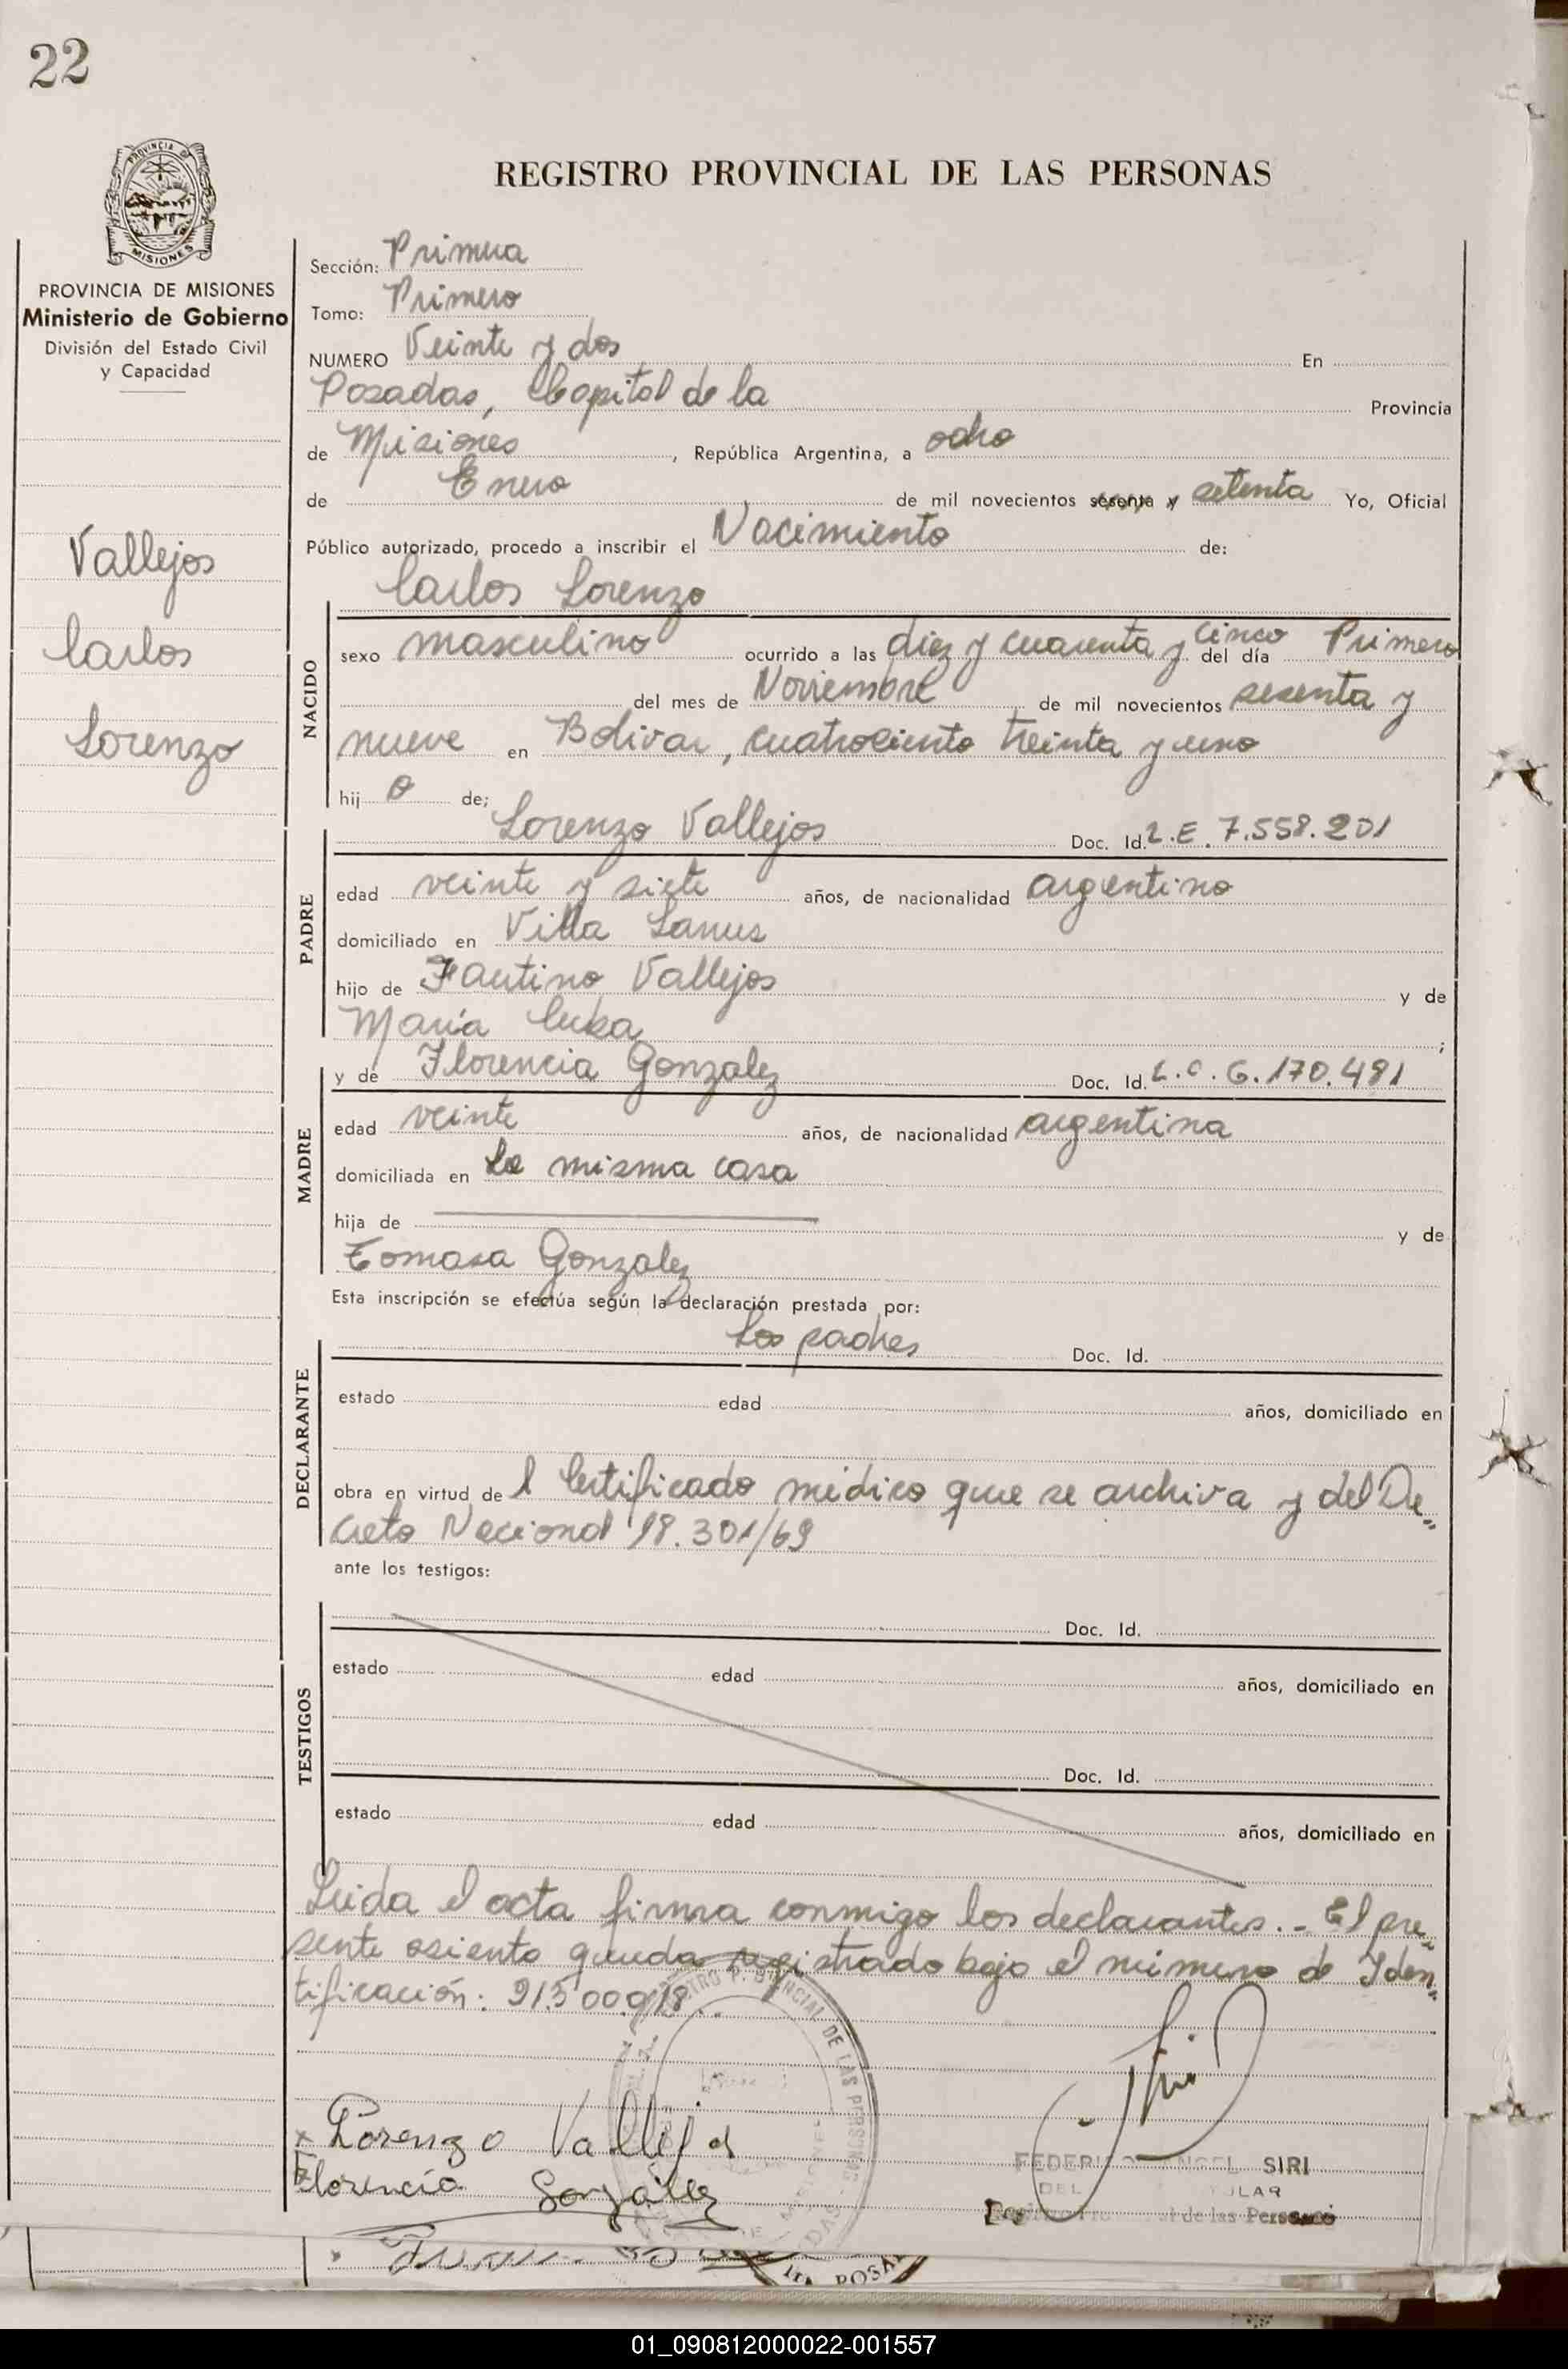 22
PROVINCIA DE
MISIONES
PROVINCIA DE MISIONES
Ministerio de Gobierno
División del Estado Civil
y Capacidad
Vallejos
Carlos
Lorenzo
REGISTRO PROVINCIAL DE LAS PERSONAS
Sección: Primera
Tomo: Primero
NUMERO Veinte y dos En
Posadas, Capital de la Provincia
de Misiones, República Argentina, a ocho
de Enero de mil novecientos sesenta y setenta Yo, Oficial
Público autorizado, procedo a inscribir el Nacimiento de:
Carlos Lorenzo
NACIDO
sexo masculino ocurrido a las diez y cuarenta y cinco del día Primero
del mes de Noviembre de mil novecientos sesenta y
nueve en Bolivar, cuatrociento treinta y uno
hij o de;
Lorenzo Vallejos Doc. Id. L.E. 7.558.201
PADRE
edad veinte y siete años, de nacionalidad argentino
domiciliado en Villa Lanus
hijo de Fautino Vallejos y de
Maria ;
y de Florencia Gonzalez Doc. Id. L.C. 6.170.481
MADRE
edad veinte años, de nacionalidad argentina
domiciliada en La misma casa
hija de y de
Tomasa Gonzalez
Esta inscripción se efectúa según la declaración prestada por:
Los padres Doc. Id.
DECLARANTE
estado edad años, domiciliado en
obra en virtud de l Certificado médico que se archiva y del De=
creto Nacional 18.301/69
ante los testigos:
Doc. Id.
TESTIGOS
estado edad años, domiciliado en
Doc. Id.
estado edad años, domiciliado en
Leida el acta firma conmigo los declarantes.- El pre=
sente asiento queda registrado bajo el número de Iden=
tificación: 91500018..
Lorenzo Vallejos
Florencia González
DE LAS PERSONAS
SIRI
de las Personas
POSA
01_090812000022-001557